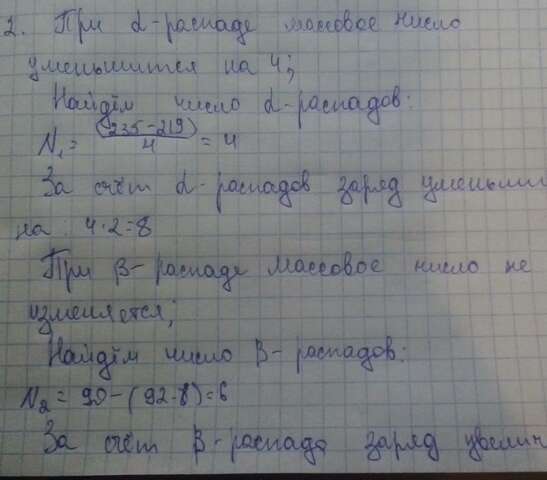 2. При α-распаде массовое число
уменьшится на 4;
Найдём число α-распадов:
N₁ = (235-219)/4 = 4
За счёт α-распадов заряд уменьши
на : 4·2=8
При β-распаде массовое число не
изменяется;
Найдём число β-распадов:
N₂ = 90-(92-8)=6
За счёт β-распада заряд увелич